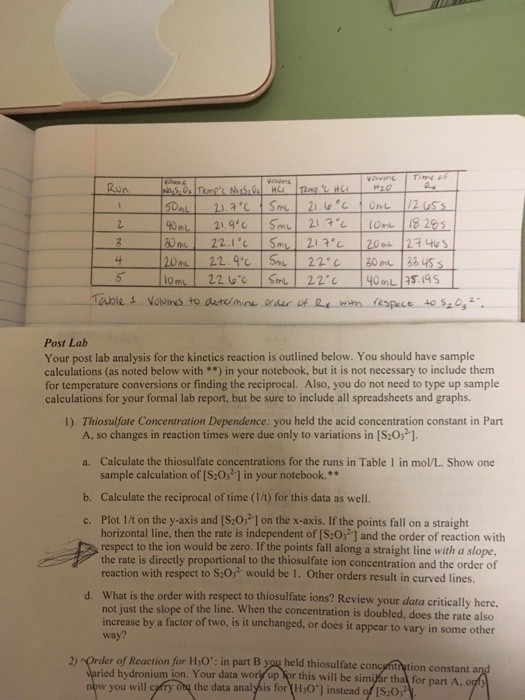 Run Volume Na2S2O3 Temp°C Na2S2O3 Volume HCl Temp. °C HCl Volume H2O Time of Rx
1 50mL 21.7°C 5mL 21.6°C 0mL 12.65s
2 40mL 21.9°C 5mL 21.7°C 10mL 18.28s
3 30mL 22.1°C 5mL 21.7°C 20mL 27.46s
4 20mL 22.9°C 5mL 22°C 30mL 38.45s
5 10mL 22.6°C 5mL 22°C 40mL 75.19s
Table 1 Volumes to determine order of Rx with respect to S2O3²⁻.
Post Lab
Your post lab analysis for the kinetics reaction is outlined below. You should have sample
calculations (as noted below with **) in your notebook, but it is not necessary to include them
for temperature conversions or finding the reciprocal. Also, you do not need to type up sample
calculations for your formal lab report, but be sure to include all spreadsheets and graphs.
1) Thiosulfate Concentration Dependence: you held the acid concentration constant in Part
A, so changes in reaction times were due only to variations in [S2O3²⁻].
a. Calculate the thiosulfate concentrations for the runs in Table 1 in mol/L. Show one
sample calculation of [S2O3²⁻] in your notebook.**
b. Calculate the reciprocal of time (1/t) for this data as well.
c. Plot 1/t on the y-axis and [S2O3²⁻] on the x-axis. If the points fall on a straight
horizontal line, then the rate is independent of [S2O3²⁻] and the order of reaction with
respect to the ion would be zero. If the points fall along a straight line with a slope,
the rate is directly proportional to the thiosulfate ion concentration and the order of
reaction with respect to S2O3²⁻ would be 1. Other orders result in curved lines.
d. What is the order with respect to thiosulfate ions? Review your data critically here,
not just the slope of the line. When the concentration is doubled, does the rate also
increase by a factor of two, is it unchanged, or does it appear to vary in some other
way?
2) Order of Reaction for H3O⁺: in part B you held thiosulfate concentration constant and
varied hydronium ion. Your data work up for this will be similar that for part A, only
now you will carry out the data analysis for [H3O⁺] instead of [S2O3²⁻].